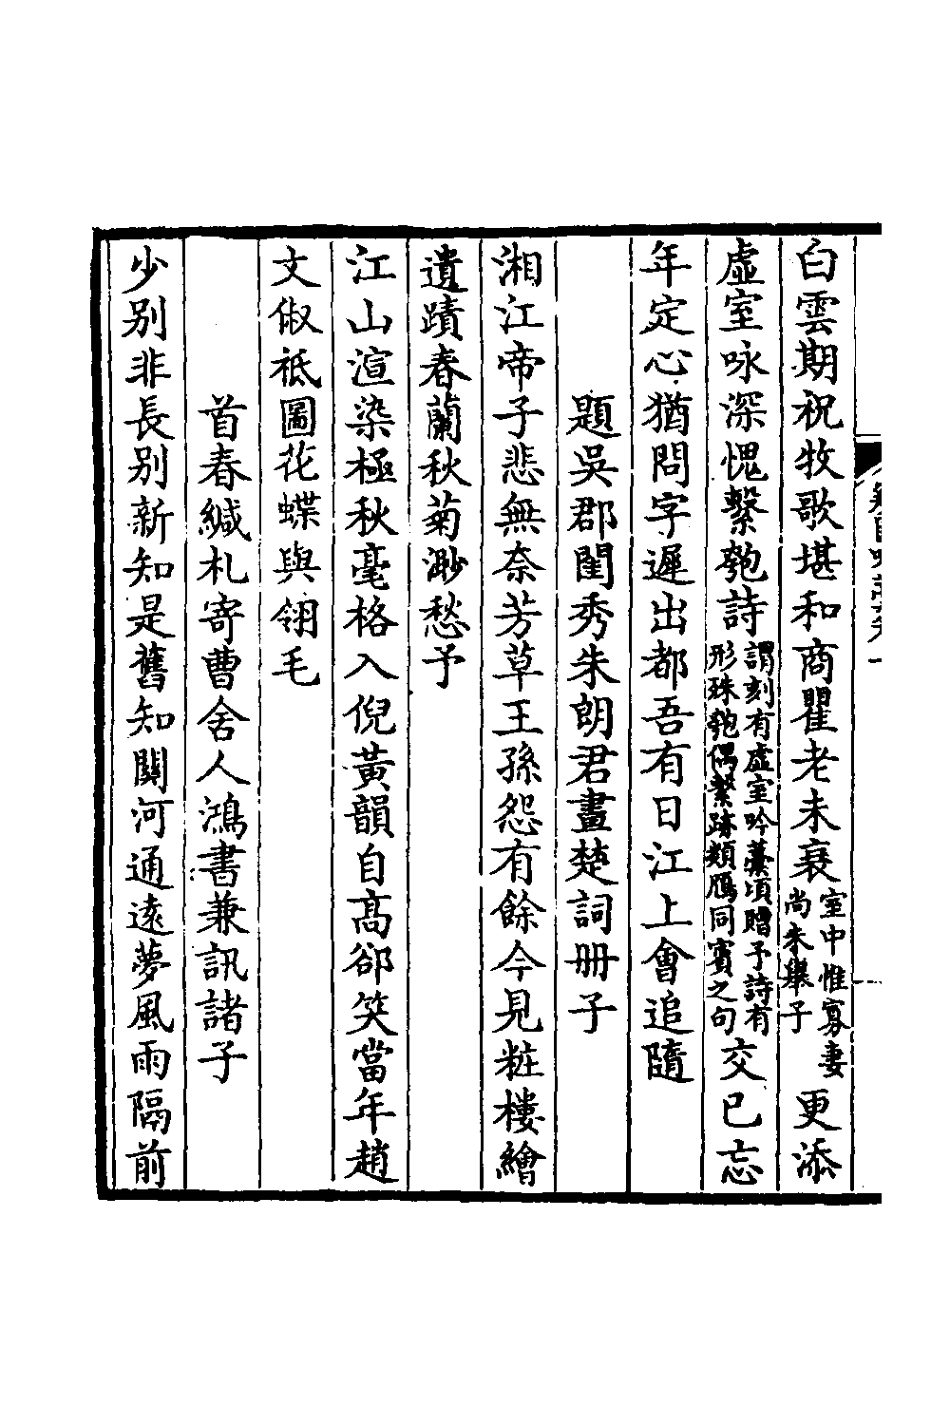 白雲期祝牧歌堪和商瞿老未衰室中惟寡妻尚未舉子更添
虛室咏深愧繫匏詩謂刻有虛室吟藁項贈予詩有形殊匏偶繫跡類鴈同賓之句交已忘
年定心猶問字遲出都吾有日江上會追隨
題吳郡閨秀朱朗君畫楚詞册子
湘江帝子悲無奈芳草王孫怨有餘今見粧樓繪
遺蹟春蘭秋菊渺愁予
江山渲染極秋毫格入倪黃韻自高卻笑當年趙
文俶祗圖花蝶與翎毛
首春緘札寄曹舍人鴻書兼訊諸子
少別非長別新知是舊知關河通遠夢風雨隔前